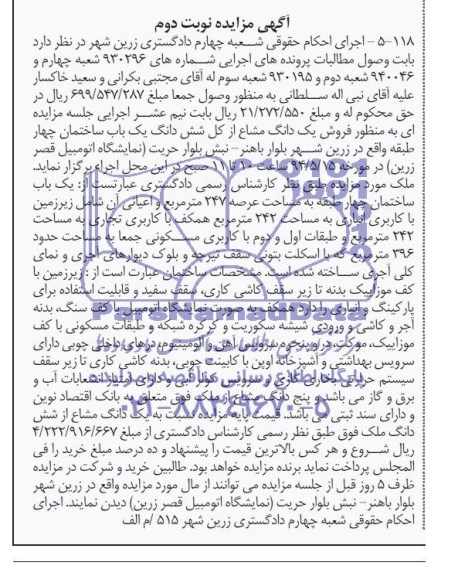 آگهی مزایده نوبت دوم
۵-۱۱۸ – اجرای احکام حقوقی شـعبه چهارم دادگستری زرین شهر در نظر دارد
بابت وصول مطالبات پرونده های اجرایی شـماره های ۹۳۰۲۹۶ شعبه چهارم و
۹۴۰۰۴۶ شعبه دوم و ۹۳۰۱۹۵ شعبه سوم له آقای مجتبی بکرانی و سعید خاکسار
علیه آقای نبی اله سـلطانی به منظور وصول جمعا مبلغ ۶۹۹/۵۴۷/۲۸۷ ریال در
حق محکوم له و مبلغ ۲۱/۲۷۲/۵۵۰ ریال بابت نیم عشـر اجرایی جلسه مزایده
ای به منظور فروش یک دانگ مشاع از کل شش دانگ یک باب ساختمان چهار
طبقه واقع در زرین شـهر بلوار باهنر – نبش بلوار حریت (نمایشگاه اتومبیل قصر
زرین) در مورخه ۹۴/۵/۱۵ ساعت ۱۰ تا ۱۱ صبح در این محل اجراء برگزار نماید.
ملک مورد مزایده طبق نظر کارشناس رسمی دادگستری عبارتست از: یک باب
ساختمان چهار طبقه به مساحت عرصه ۲۴۷ مترمربع و اعیانی آن شامل زیرزمین
با کاربری انباری به مساحت ۲۴۲ مترمربع همکف با کاربری تجاری به مساحت
۲۴۲ مترمربع و طبقات اول و دوم با کاربری مسـکونی جمعا به مساحت حدود
۳۹۶ مترمربع که با اسکلت بتونی سقف تیرچه و بلوک دیوارهای آجری و نمای
کلی آجری سـاخته شده است. مشخصات ساختمان عبارت است از: زیرزمین با
کف موزاییک بدنه تا زیر سقف کاشی کاری، سقف سفید و قابلیت استفاده برای
پارکینگ و انباری را دارد همکف به صورت نمایشگاه اتومبیل با کف سنگ، بدنه
آجر و کاشی و ورودی شیشه سکوریت و کرکره شبکه و طبقات مسکونی با کف
موزاییک، موکت، در و پنجره بیرونی آهن و آلومینیوم، درهای داخلی چوبی دارای
سرویس بهداشتی و آشپزخانه اوپن با کابینت چوبی، بدنه کاشی کاری تا زیر سقف
سیستم حرارتی بخاری گازی و سرویس کولر آبی و دارای امتیاز انشعابات آب و
برق و گاز می باشد و پنج دانگ مشاع از ملک فوق متعلق به بانک اقتصاد نوین
و دارای سند ثبتی می باشد. قیمت پایه مزایده نسبت به یک دانگ مشاع از شش
دانگ ملک فوق طبق نظر رسمی کارشناس دادگستری از مبلغ ۴/۲۲۲/۹۱۶/۶۶۷
ریال شـروع و هر کس بالاترین قیمت را پیشنهاد و ده درصد مبلغ خرید را فی
المجلس پرداخت نماید برنده مزایده خواهد بود. طالبین خرید و شرکت در مزایده
ظرف ۵ روز قبل از جلسه مزایده می توانند از مال مورد مزایده واقع در زرین شهر
بلوار باهنر- نبش بلوار حریت (نمایشگاه اتومبیل قصر زرین) دیدن نمایند. اجرای
احکام حقوقی شعبه چهارم دادگستری زرین شهر ۵۱۵ /م الف
ParsNamadData
پایگاه اطلاع رسانی
۰۲۱-۸۸۳۴۹۶۷۰-۵